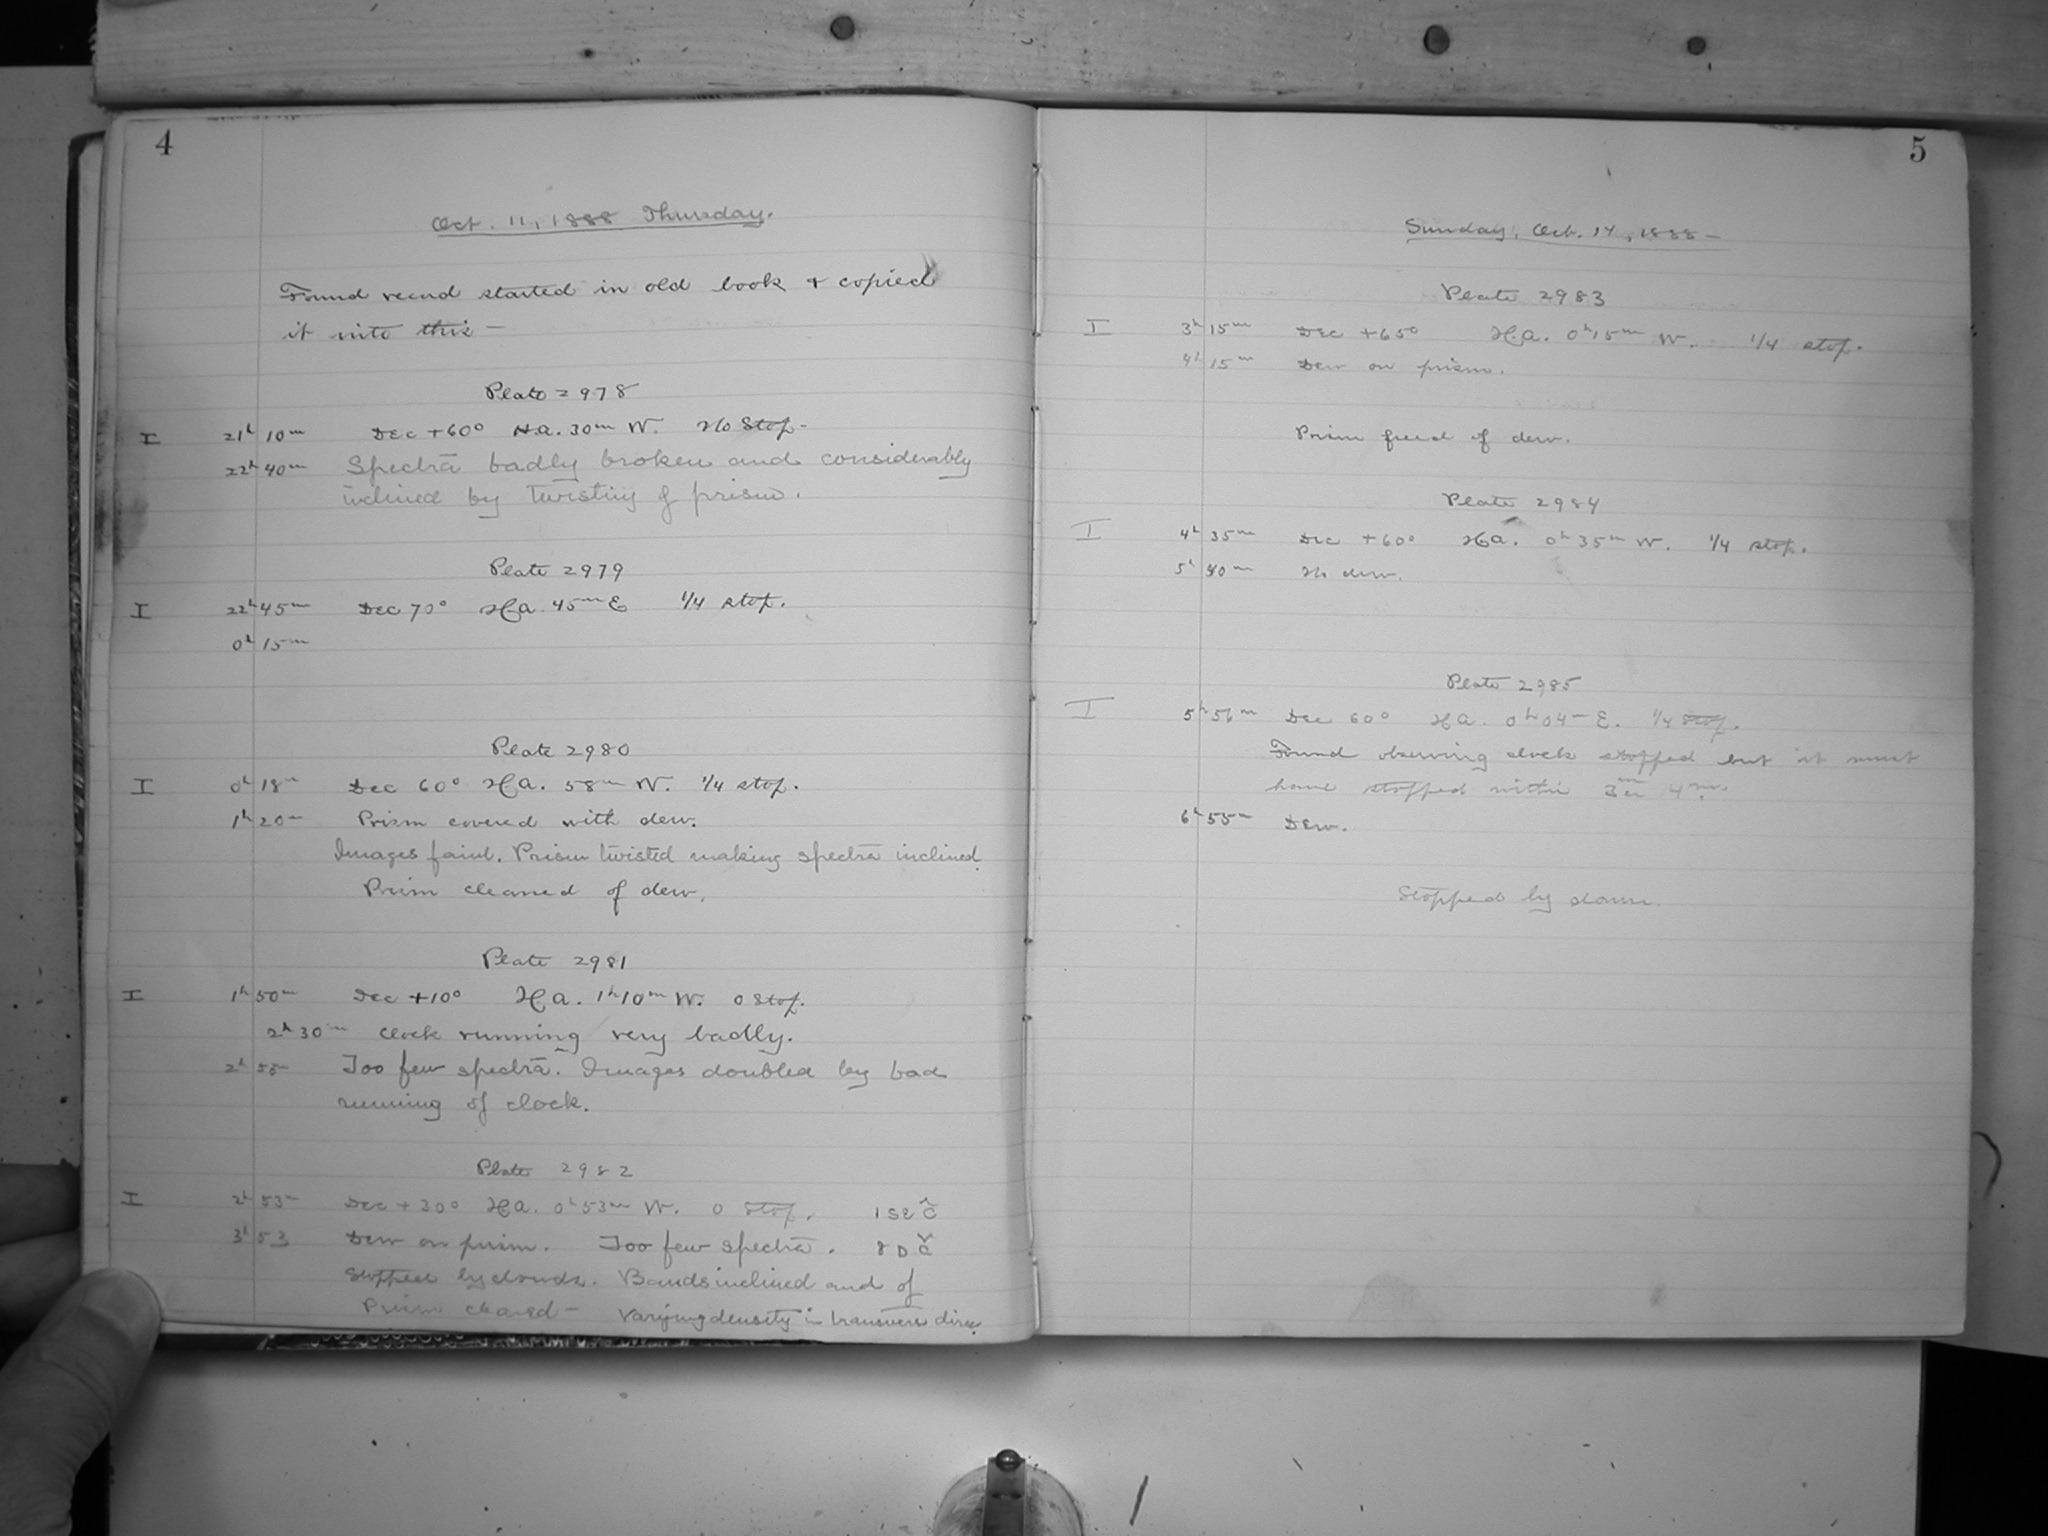 4
Oct. 11, 1888 Thursday.
Found record started in old book & copied
it into this —
Plate 2978
I 21h 10m Dec +60° H.a. 30m W. No Stop-
22h 40m Spectra badly broken and considerably
inclined by twisting of prism.
Plate 2979
I 22h 45m Dec 70° H.a. 45m E 1/4 stop.
0h 15m
Plate 2980
I 0h 18m Dec 60° H.a. 58m W. 1/4 stop.
1h 20m Prism covered with dew.
Images faint. Prism twisted making spectra inclined.
Prism cleaned of dew.
Plate 2981
I 1h 50m Dec +10° H.a. 1h 10m W. 0 stop.
2h 30m Clock running very badly.
2h 55m Too few spectra. Images doubled by bad
running of clock.
Plate 2982
I 2h 53m Dec +30° H.a. 0h 53m W. 0 stop.
3h 53 Dew on prism. Too few spectra.
Stopped by clouds. Bands inclined and of
Prism cleaned — varying density in transverse direc.
5
Sunday, Oct. 14, 1888 —
Plate 2983
I 3h 15m Dec +65° H.a. 0h 15m W. 1/4 stop.
4h 15m Dew on prism.
Prism freed of dew.
Plate 2984
I 4h 35m Dec +60° H.a. 0h 35m W. 1/4 stop.
5h 40m No dew.
Plate 2985
I 5h 56m Dec 60° H.a. 0h 04m E. 1/4 stop.
Found observing clock stopped but it must
have stopped within 3m or 4m.
6h 55m Dew.
Stopped by dawn.